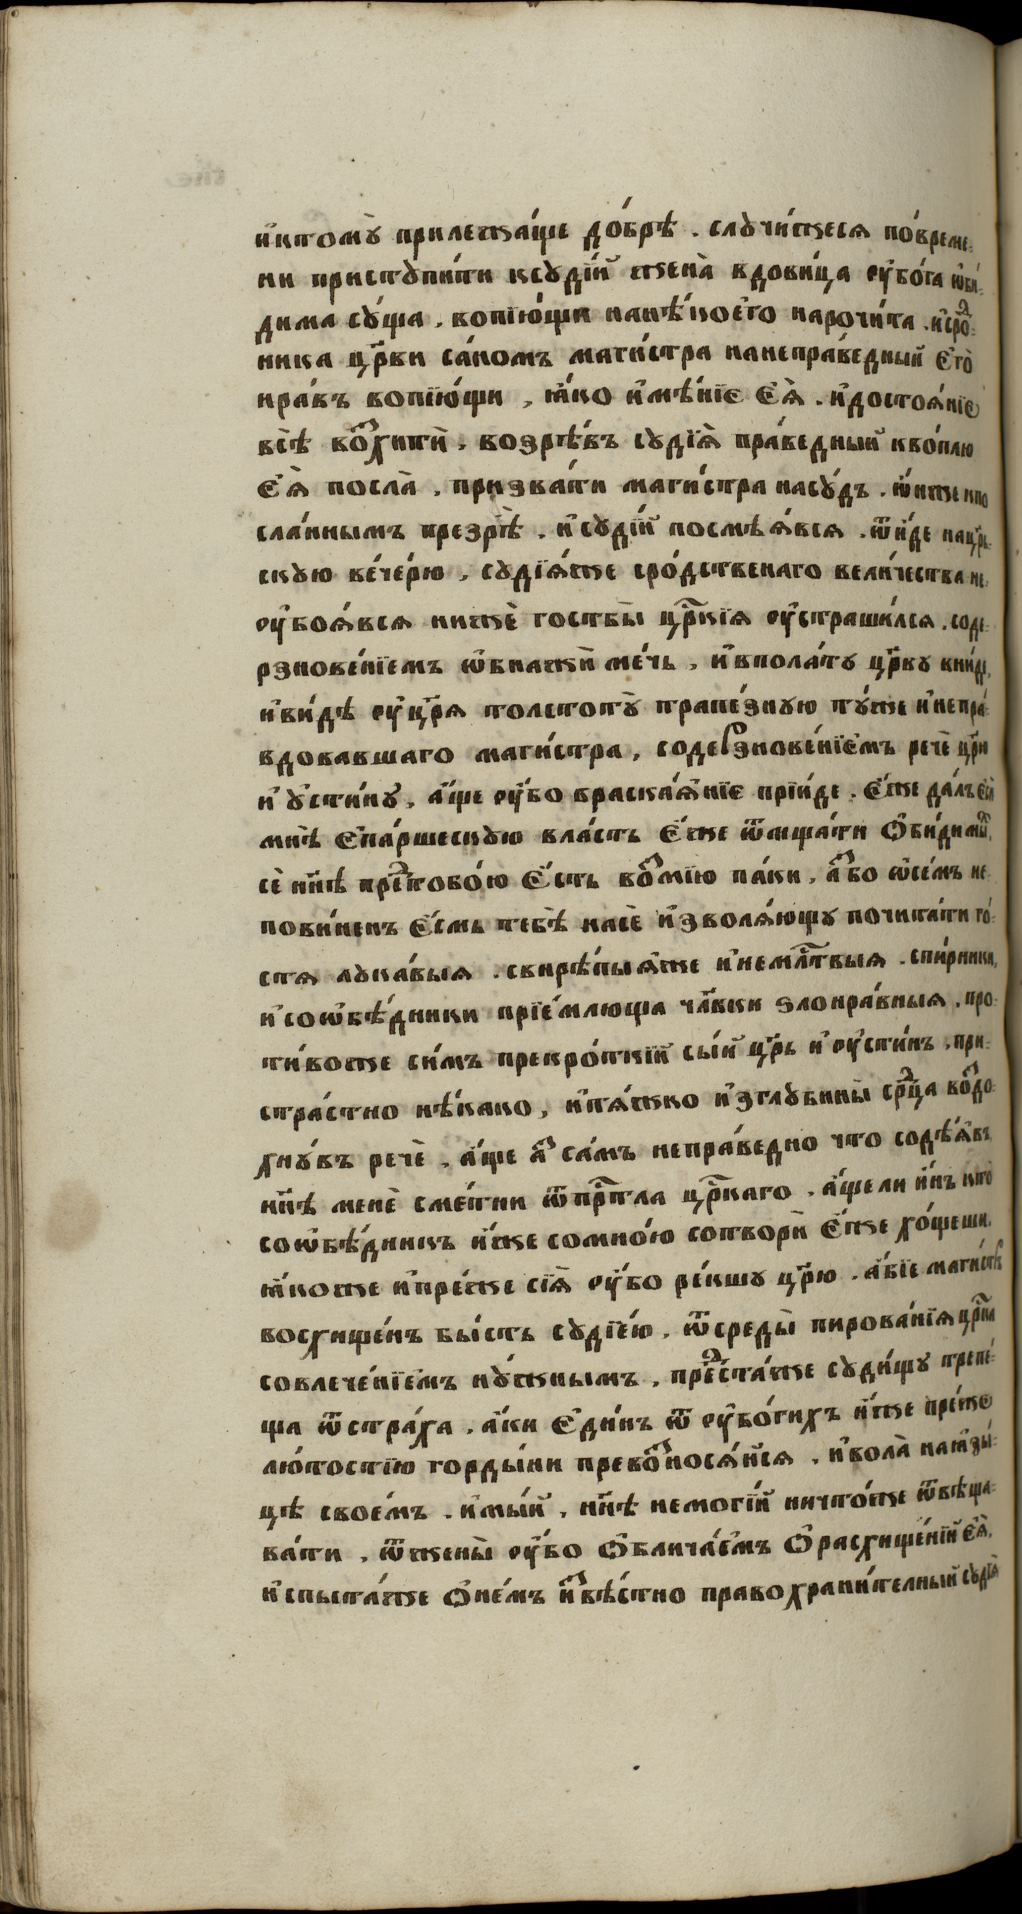 и҆ктомꙋ̀ прилежа́ще до́брѣ . слꙋчи́жеся по́време-
ни пристꙋпи́ти ксꙋдїи́ жена̀ вдови́ца ᲂу҆бо́га ѡ҆би́-
дима сꙋ́ща . вопїю́щи нанѣ́коего нарочи́та . и҆сро́д-
ника цр҃ки са́номъ маги́стра нанепра́ведный є҆го̀
нра́въ вопїю́щи , ꙗ҆́ко и҆мѣ́нїе є҆ѧ̀ . и҆достоѧ́нїе
всѐ восхитѝ . возрѣ́въ сꙋдїѧ̀ пра́ведный квоплю
є҆ѧ̀ посла̀ , призва́ти маги́стра насꙋ́дъ . ѡ҆́нже кпо
сла́ннымъ презрѣ̀ . и҆сꙋдїи́ посмѣѧ́вся . ѿи́де нацр҃ь-
скꙋю ве́че́рю , сꙋдїѧ́же сро́дственаго вели́чества не
ᲂу҆боѧ́вся нижѐ гостьбы̀ цр҃кїя ᲂу҆страши́лся . соде-
рзнове́нїемъ ѡ҆бнажѝ ме́чь , и҆вполатꙋ цр҃кꙋ вни́де,
и҆ви́дѣ ᲂу҆цр҃я толстотꙋ̀ трапе́знꙋю тꙋ́же и҆непра́-
вдовавшаго маги́стра , содерзнове́нїемъ речѐ цр҃ю
и҆ꙋстинꙋ , а҆́ще ᲂу҆́бо враска́ѧнїе прїи́де . є҆́же да́лъ є҆сѝ
мнѣ̀ є҆па́ршескꙋю вла́сть є҆́же ѿмща́ти ѻ҆би́димы̑,
сѐ нн҃ѣ пред̾тобо́ю є҆́сть возмїю па́ки , а҆́збо ѡ҆се́мъ не
пови́ненъ є҆́смь тебѣ̀ насѐ и҆зволѧ́ющꙋ почита́ти го́-
стя лꙋка́выя . свирѣ́пыѧже и҆немлⷭ҇твыя . спи́рники,
и҆соѡбѣ́дники прїе́млюща чл҃вки злонра́вныя . про-
ти́воже си́мъ прекро́ткїй сы́й цр҃ь и҆ᲂу҆сти́нъ , при-
стра́стно нѣ́како , и҆тѧ́жко и҆зглꙋбины̀ срⷣца воздо
хнꙋ́въ речѐ , а҆́ще а҆́зъ са́мъ непра́ведно что̀ содѣ́ѧвъ
нн҃ѣ менѐ сме́тни ѿпрⷭ҇тла цр҃каго . а҆́щели и҆́нъ кто̀
соѡбѣ́дникъ и҆́же сомно́ю сотворѝ є҆́же хо́щеши.
ꙗ҆́коже и҆пре́же сїѧ̀ ᲂу҆́бо ре́кшꙋ цр҃ю . а҆́бїе маги́стръ
восхище́нъ бы́сть сꙋдїе́ю , ѿсреды̀ пирова́нїя цр҃ка
совлече́нїемъ нꙋ́жнымъ , предста́же сꙋди́щꙋ трепе́-
ща ѿстра́ха . а҆́ки є҆ди́нъ ѿ ᲂу҆бо́гихъ и҆́же пре́же
лю́тостїю горды́ни превозносѧ́йся . и҆вола̀ наꙗ҆зы́-
цѣ свое́мъ . и҆мы́й , нн҃ѣ немогїй ничто́же ѿвѣща-
ва́ти , ѿжены̀ ᲂу҆́бо ѻ҆блича́емъ ѻ҆расхище́нїй є҆ѧ̀.
и҆спыта́же ѻ҆не́мъ и҆звѣ́стно правохрани́телный сꙋдїѧ̀